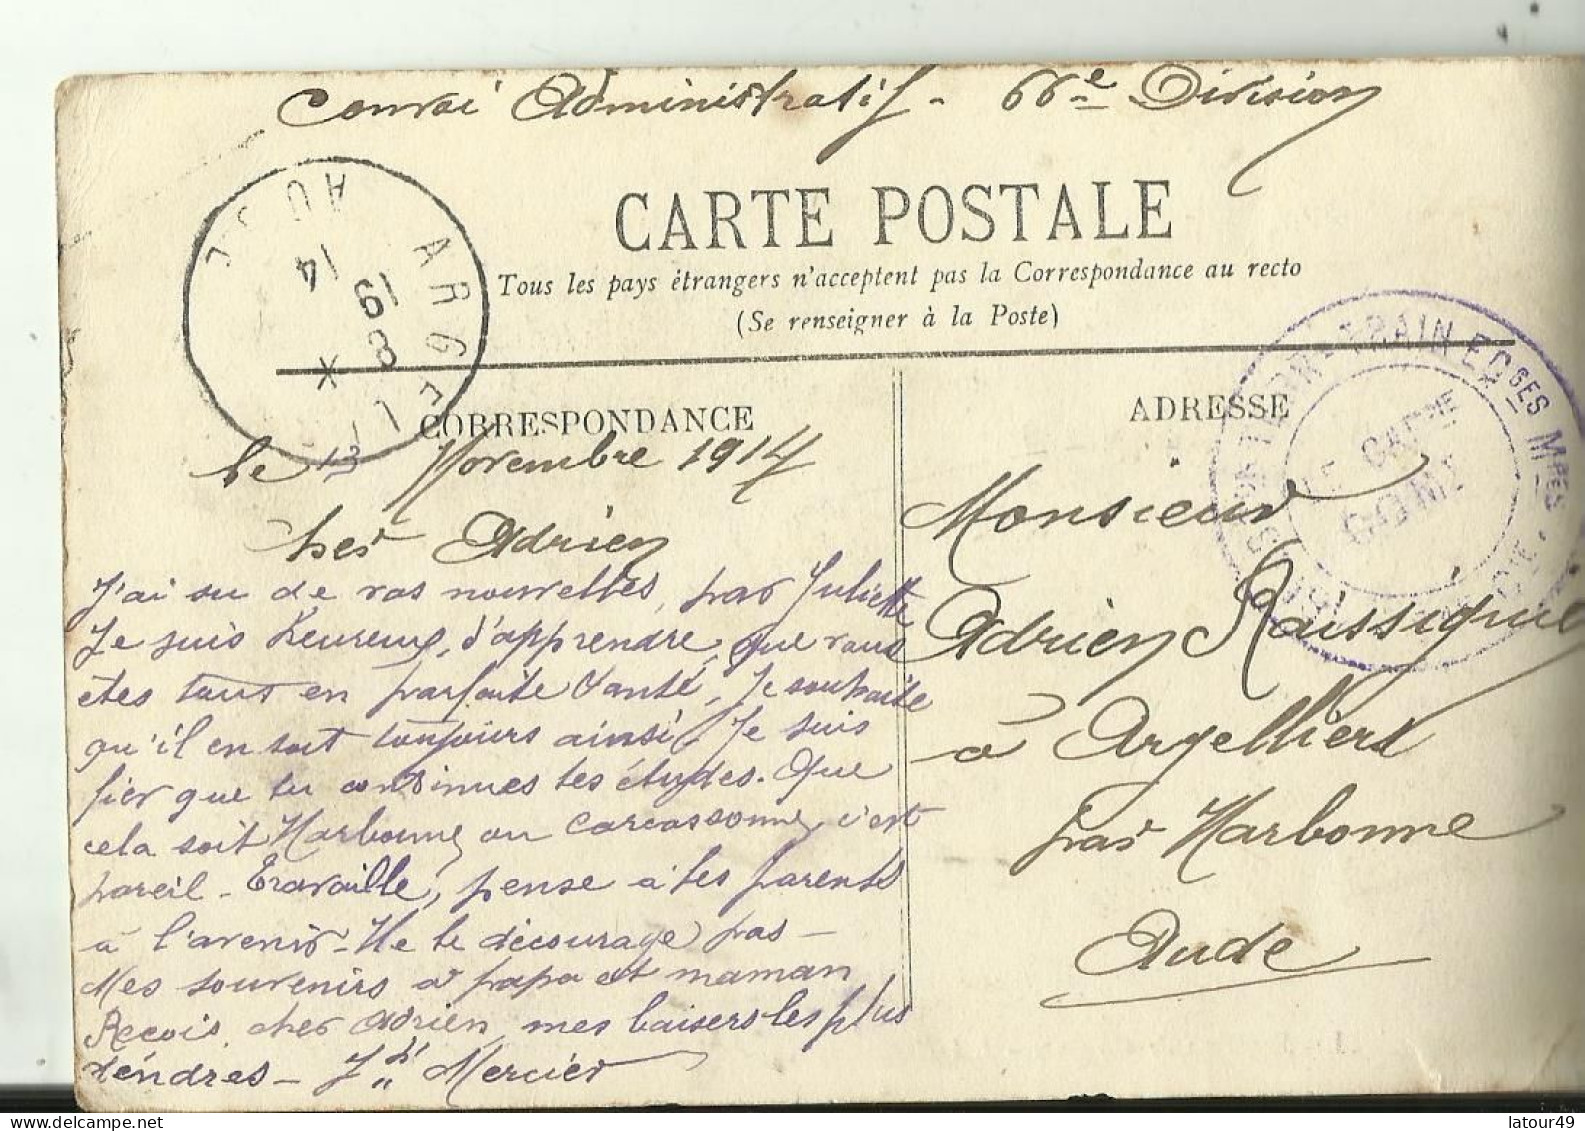 Convoi Administratif - 66e Division
CARTE POSTALE
Tous les pays étrangers n'acceptent pas la Correspondance au recto
(Se renseigner à la Poste)
ARGELI
AUD
14
19
8
*
CORRESPONDANCE
le 13 Novembre 1914
cher Adrien
J'ai su de vos nouvelles, par Juliette
Je suis heureux, d'apprendre, que vous
êtes tous en parfaite santé, Je souhaite
qu'il en soit toujours ainsi. Je suis
fier que tu continues tes études. Que
cela soit Narbonne ou Carcassonne, c'est
pareil - Travaille, pense à tes parents
à l'avenir - Ne te décourage pas -
Mes souvenirs à papa et maman
Reçois, cher Adrien, mes baisers les plus
tendres - Mercier
ADRESSE
Monsieur
Adrien
à Argelliers
par Narbonne
Aude
TRAIN EQGES MRES
LE CAPNE
COMT
latour49